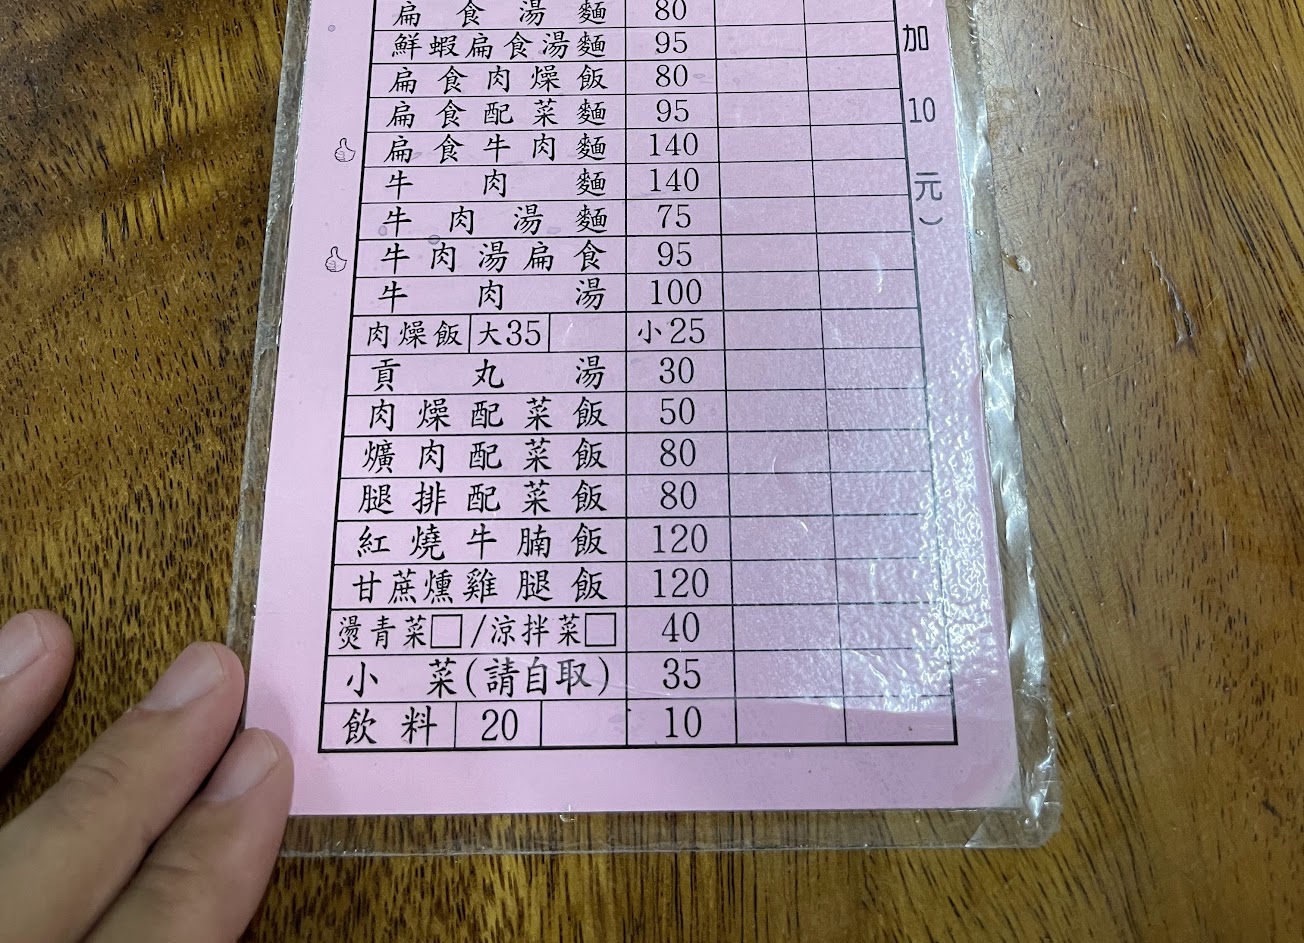 扁食湯麵 80
鮮蝦扁食湯麵 95
扁食肉燥飯 80
扁食配菜麵 95
扁食牛肉麵 140
牛肉麵 140
牛肉湯麵 75
牛肉湯扁食 95
牛肉湯 100
肉燥飯 大35 小25
貢丸湯 30
肉燥配菜飯 50
爌肉配菜飯 80
腿排配菜飯 80
紅燒牛腩飯 120
甘蔗燻雞腿飯 120
燙青菜□/涼拌菜□ 40
小菜(請自取) 35
飲料 20 10
加10元)